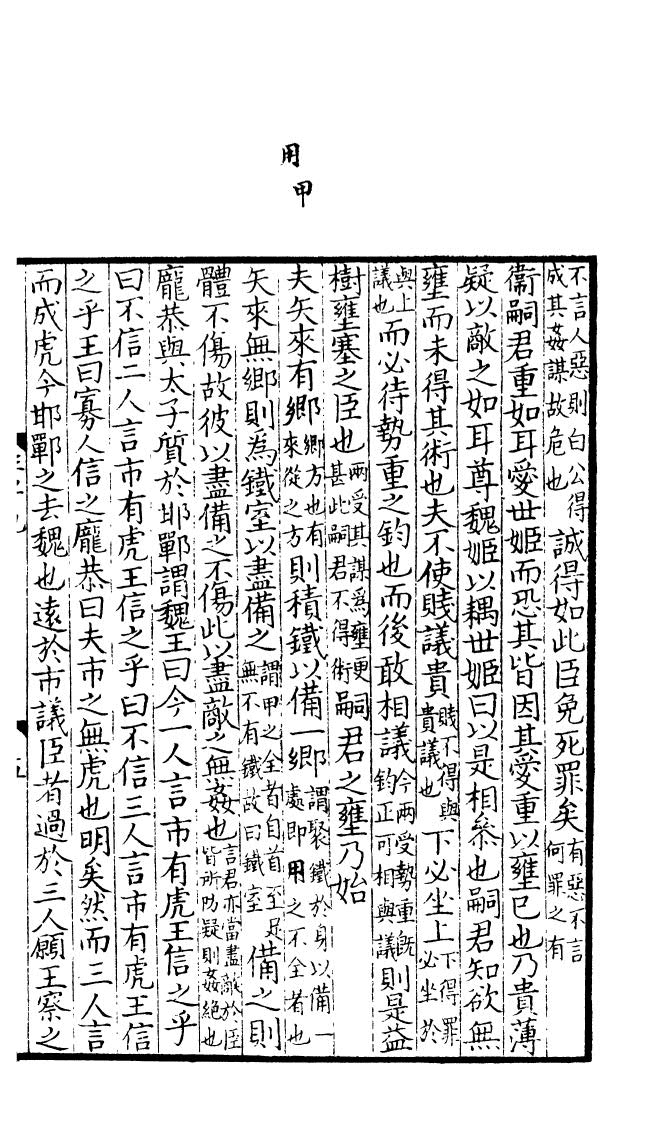 用
甲
不言人惡則白公得
成其姦謀故危也
誠得如此臣免死罪矣
有惡不言
何罪之有
衞嗣君重如耳愛世姬而恐其皆因其愛重以壅已也乃貴薄
疑以敵之如耳尊魏姬以耦世姬曰以是相參也嗣君知欲無
壅而未得其術也夫不使賤議貴
賤不得與
貴議也
下必坐上
下得罪
必坐於
與上
議也
而必待勢重之鈞也而後敢相議
今兩受勢重既
鈞正可相與議
則是益
樹壅塞之臣也
兩受其謀爲壅更
甚此嗣君不得術
嗣君之壅乃始
夫矢來有鄉
鄉方也有
來從之方
則積鐵以備一鄉
謂聚鐵於身以備一
處即用之不全者也
矢來無鄉則為鐵室以盡備之
謂甲之全者自首至足
無不有鐵故曰鐵室
備之則
體不傷故彼以盡備之不傷此以盡敵之無姦也
言君亦當盡敵於臣
皆所防疑則姦絕也
龐恭與太子質於邯鄲謂魏王曰今一人言市有虎王信之乎
曰不信二人言市有虎王信之乎曰不信三人言市有虎王信
之乎王曰寡人信之龐恭曰夫市之無虎也明矣然而三人言
而成虎今邯鄲之去魏也遠於市議臣者過於三人願王察之